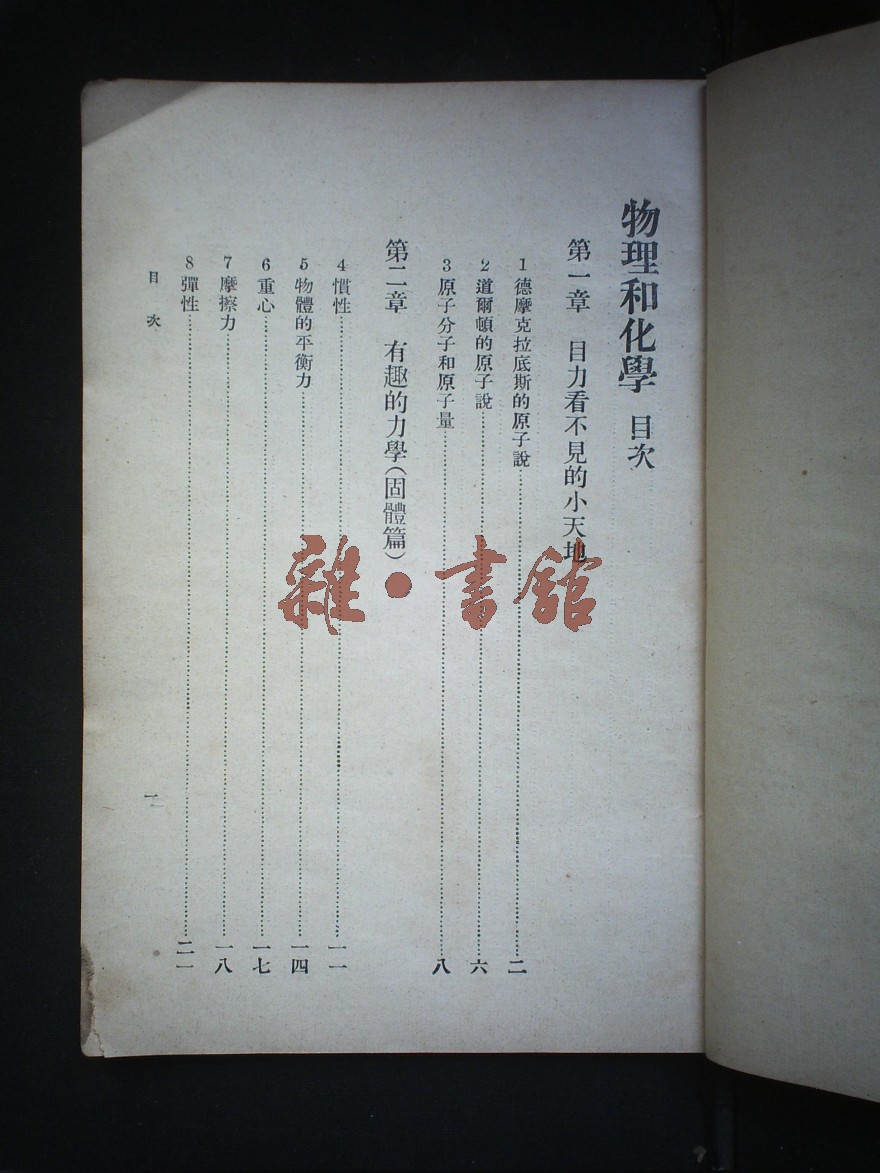 物理和化學 目次
第一章 目力看不見的小天地
1 德摩克拉底斯的原子說……二
2 道爾頓的原子說……六
3 原子分子和原子量……八
第二章 有趣的力學(固體篇)
4 慣性……一一
5 物體的平衡力……一四
6 重心……一七
7 摩擦力……一八
8 彈性……二一
目次 一
雜·書館